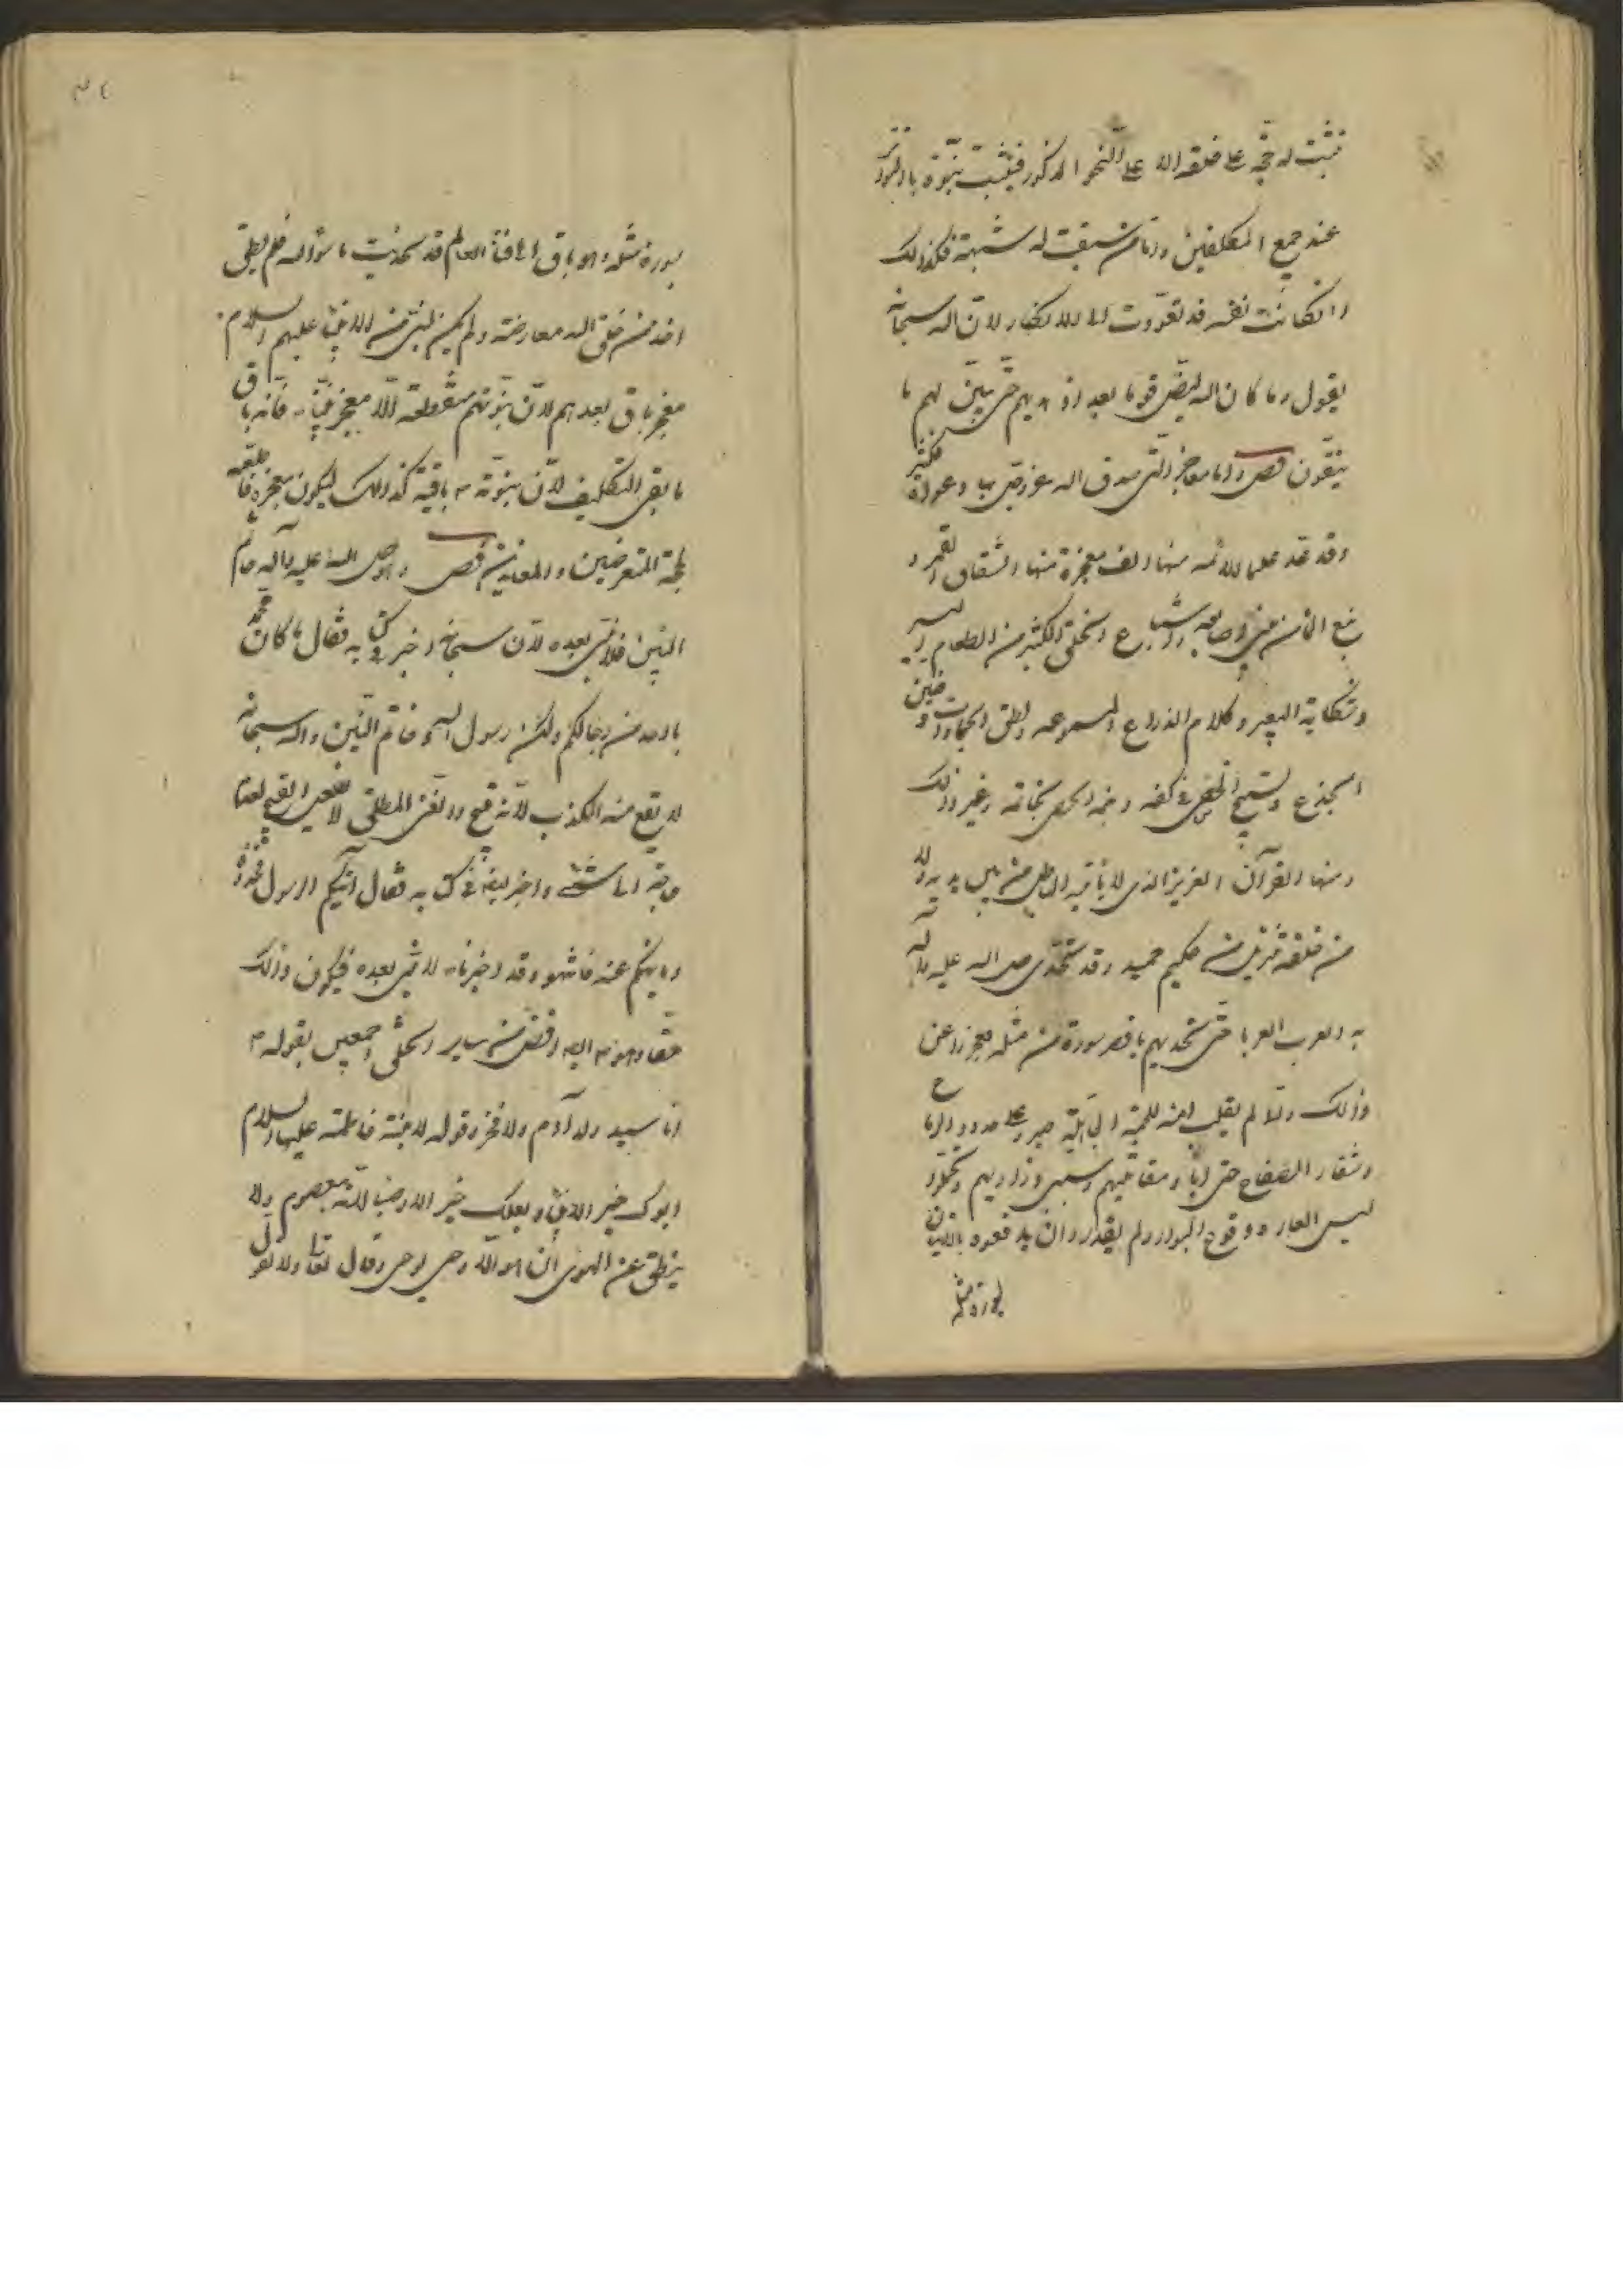 تثبت له حجة على خلقه الا على النحو المذكور فيثبت نبوته بالتواتر
عند جميع المكلفين واما من سبقت له شبهة فكذلك
ان كانت نفسه قد تعودت الانكار لان الله سبحانه
يقول وما كان الله ليضل قوما بعد اذ هديهم حتى يبين لهم ما
يتقون فصل واما معاجزه التى صدق الله عز وجل بها دعواه فكثيرة
وقد عد علماء الامة منها الف معجزة منها انشقاق القمر و
نبع الماء من بين اصابعه واشباع الخلق الكثير من الطعام اليسير
وشكاية البعير وكلام الذراع المسمومة ونطق الجمادات وحنين
الجذع وتسبيح الحصى فى كفه وختمه الحصى بخاتمه وغير ذلك
ومنها القرآن العزيز الذى لا ياتيه الباطل من بين يديه ولا
من خلفه تنزيل من حكيم حميد وقد تحدى صلى الله عليه وآله
به العرب العرباء حتى تحديهم باقصر سورة من مثله فعجزوا عن
ذلك ولم يقلب منه للحمية الجاهلية صبروا على حدود الرماح
وشفار الصفاح حتى اباد مقاتليهم وسبى ذراريهم وتحملوا
لبس العار ووقوع البوار ولم يقدروا ان يدفعوه بالاتيان
بسورة مثله
بسورة مثله وهو باق الى فناء العالم قد تحديت فلم يطق
احد من خلق الله معارضته ولم يكن لنبى من الانبياء عليهم السلام
معجز باق بعدهم لان نبوتهم منقطعة الا معجز نبينا فانه باق
ما بقى التكليف لان نبوته باقية كذلك ليكون معجزه قاطعة
لحجة المتعرضين والمعاندين فصل وهو صلى الله عليه وآله خاتم
النبيين فلا نبى بعده لان الله سبحانه اخبر فى كتابه فقال ما كان محمد
ابا احد من رجالكم ولكن رسول الله وخاتم النبيين والله سبحانه
لا يقع منه الكذب لانه قبيح والغنى المطلق لا يفعل القبيح لعدم
حاجته الى شىء واخبر نبيه فى كتابه فقال ما آتيكم الرسول فخذوه
وما نهيكم عنه فانتهوا وقد اخبرنا لا نبى بعده فيكون ذلك
حقا وهو افضل من ساير الخلق اجمعين بقوله
انا سيد ولد آدم ولا فخر وقوله لابنته فاطمة عليها السلام
ابوك خير الانبياء وبعلك خير الاوصياء لانه معصوم ولا
ينطق عن الهوى ان هو الا وحى يوحى وقال تعالى ولو تقول